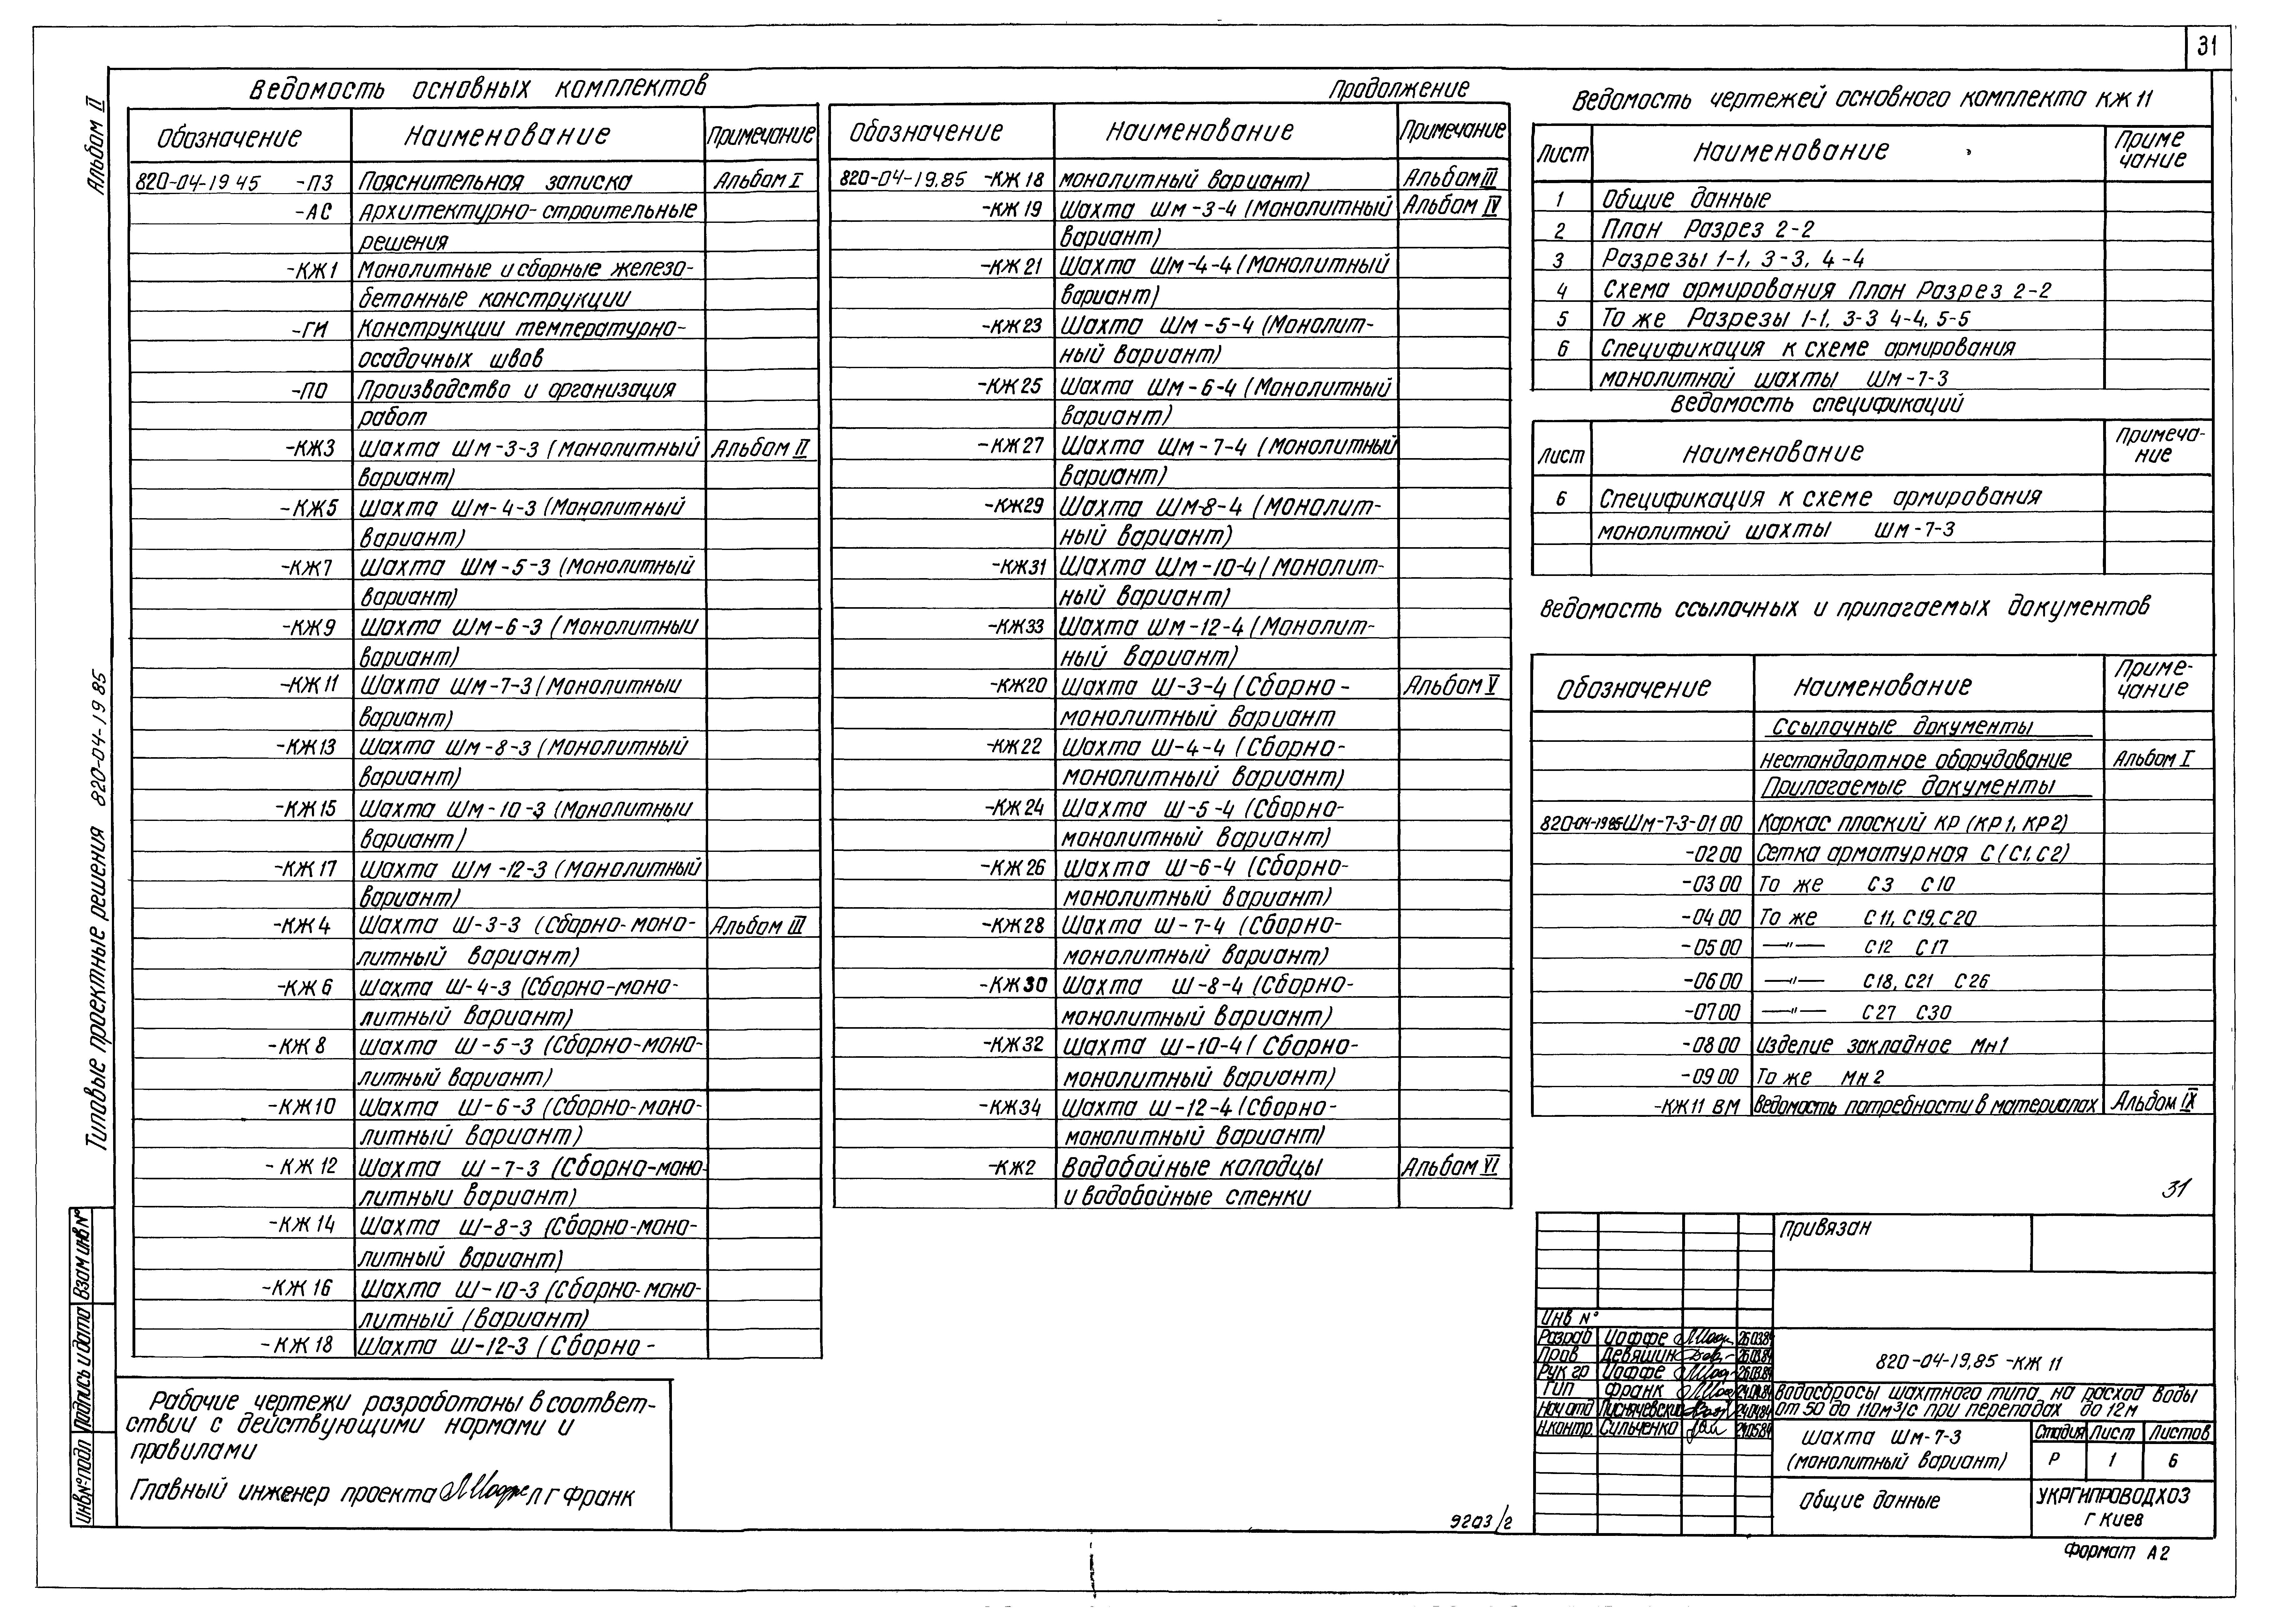 31
Альбом II
Типовые проектные решения 820-04-19 85
Взам инв №
Подпись и дата
Инв № подл
Ведомость основных комплектов
Обозначение Наименование Примечание
820-04-19 45 -ПЗ Пояснительная записка Альбом I
-АС Архитектурно-строительные
решения
-КЖ1 Монолитные и сборные железо-
бетонные конструкции
-ГИ Конструкции температурно-
осадочных швов
-ПО Производство и организация
работ
-КЖ3 Шахта Шм-3-3 (Монолитный Альбом II
вариант)
-КЖ5 Шахта Шм-4-3 (Монолитный
вариант)
-КЖ7 Шахта Шм-5-3 (Монолитный
вариант)
-КЖ9 Шахта Шм-6-3 (Монолитный
вариант)
-КЖ11 Шахта Шм-7-3 (Монолитный
вариант)
-КЖ13 Шахта Шм-8-3 (Монолитный
вариант)
-КЖ15 Шахта Шм-10-3 (Монолитный
вариант)
-КЖ17 Шахта Шм-12-3 (Монолитный
вариант)
-КЖ4 Шахта Ш-3-3 (Сборно-моно- Альбом III
литный вариант)
-КЖ6 Шахта Ш-4-3 (Сборно-моно-
литный вариант)
-КЖ8 Шахта Ш-5-3 (Сборно-моно-
литный вариант)
-КЖ10 Шахта Ш-6-3 (Сборно-моно-
литный вариант)
-КЖ12 Шахта Ш-7-3 (Сборно-моно
литный вариант)
-КЖ14 Шахта Ш-8-3 (Сборно-моно-
литный вариант)
-КЖ16 Шахта Ш-10-3 (Сборно-моно-
литный (вариант)
-КЖ18 Шахта Ш-12-3 (Сборно-
Рабочие чертежи разработаны в соответ-
ствии с действующими нормами и
правилами
Главный инженер проекта Л Г Франк
Продолжение
Обозначение Наименование Примечание
820-04-19.85 -КЖ18 монолитный вариант) Альбом III
-КЖ19 Шахта Шм-3-4 (Монолитный Альбом IV
вариант)
-КЖ21 Шахта Шм-4-4 (Монолитный
вариант)
-КЖ23 Шахта Шм-5-4 (Монолит-
ный вариант)
-КЖ25 Шахта Шм-6-4 (Монолитный
вариант)
-КЖ27 Шахта Шм-7-4 (Монолитный
вариант)
-КЖ29 Шахта Шм-8-4 (Монолит-
ный вариант)
-КЖ31 Шахта Шм-10-4 (Монолит-
ный вариант)
-КЖ33 Шахта Шм-12-4 (Монолит-
ный вариант)
-КЖ20 Шахта Ш-3-4 (Сборно- Альбом V
монолитный вариант
-КЖ22 Шахта Ш-4-4 (Сборно-
монолитный вариант)
-КЖ24 Шахта Ш-5-4 (Сборно-
монолитный вариант)
-КЖ26 Шахта Ш-6-4 (Сборно-
монолитный вариант)
-КЖ28 Шахта Ш-7-4 (Сборно-
монолитный вариант)
-КЖ30 Шахта Ш-8-4 (Сборно-
монолитный вариант)
-КЖ32 Шахта Ш-10-4 (Сборно-
монолитный вариант)
-КЖ34 Шахта Ш-12-4 (Сборно-
монолитный вариант)
-КЖ2 Водобойные колодцы Альбом VI
и водобойные стенки
9203/2
Ведомость чертежей основного комплекта КЖ 11
Лист Наименование Приме
чание
1 Общие данные
2 План Разрез 2-2
3 Разрезы 1-1, 3-3, 4-4
4 Схема армирования План Разрез 2-2
5 То же Разрезы 1-1, 3-3 4-4, 5-5
6 Спецификация к схеме армирования
монолитной шахты Шм-7-3
Ведомость спецификаций
Лист Наименование Примеча-
ние
6 Спецификация к схеме армирования
монолитной шахты Шм-7-3
Ведомость ссылочных и прилагаемых документов
Обозначение Наименование Приме-
чание
Ссылочные документы
Нестандартное оборудование Альбом I
Прилагаемые документы
820-04-19 85-Шм-7-3-01 00 Каркас плоский КР (КР1, КР2)
-02 00 Сетка арматурная С (С1, С2)
-03 00 То же С3 С10
-04 00 То же С11, С19, С20
-05 00 —"— С12 С17
-06 00 —"— С18, С21 С26
-07 00 —"— С27 С30
-08 00 Изделие закладное Мн1
-09 00 То же Мн2
-КЖ11 ВМ Ведомость потребности в материалах Альбом IX
31
Привязан
Инв №
Разраб Иоффе 26.03.84
Пров Девяшин 26.03.84
Рук гр Иоффе 26.03.84
Гип Франк 24.04.84
Нач отд 24.04.84
Н.контр Сильченко 24.05.84
820-04-19,85 -КЖ 11
Водосбросы шахтного типа на расход воды
от 50 до 110м³/с при перепадах до 12м
Шахта Шм-7-3
(монолитный вариант)
Стадия Лист Листов
Р 1 6
Общие данные
УКРГИПРОВОДХОЗ
г Киев
Формат А2